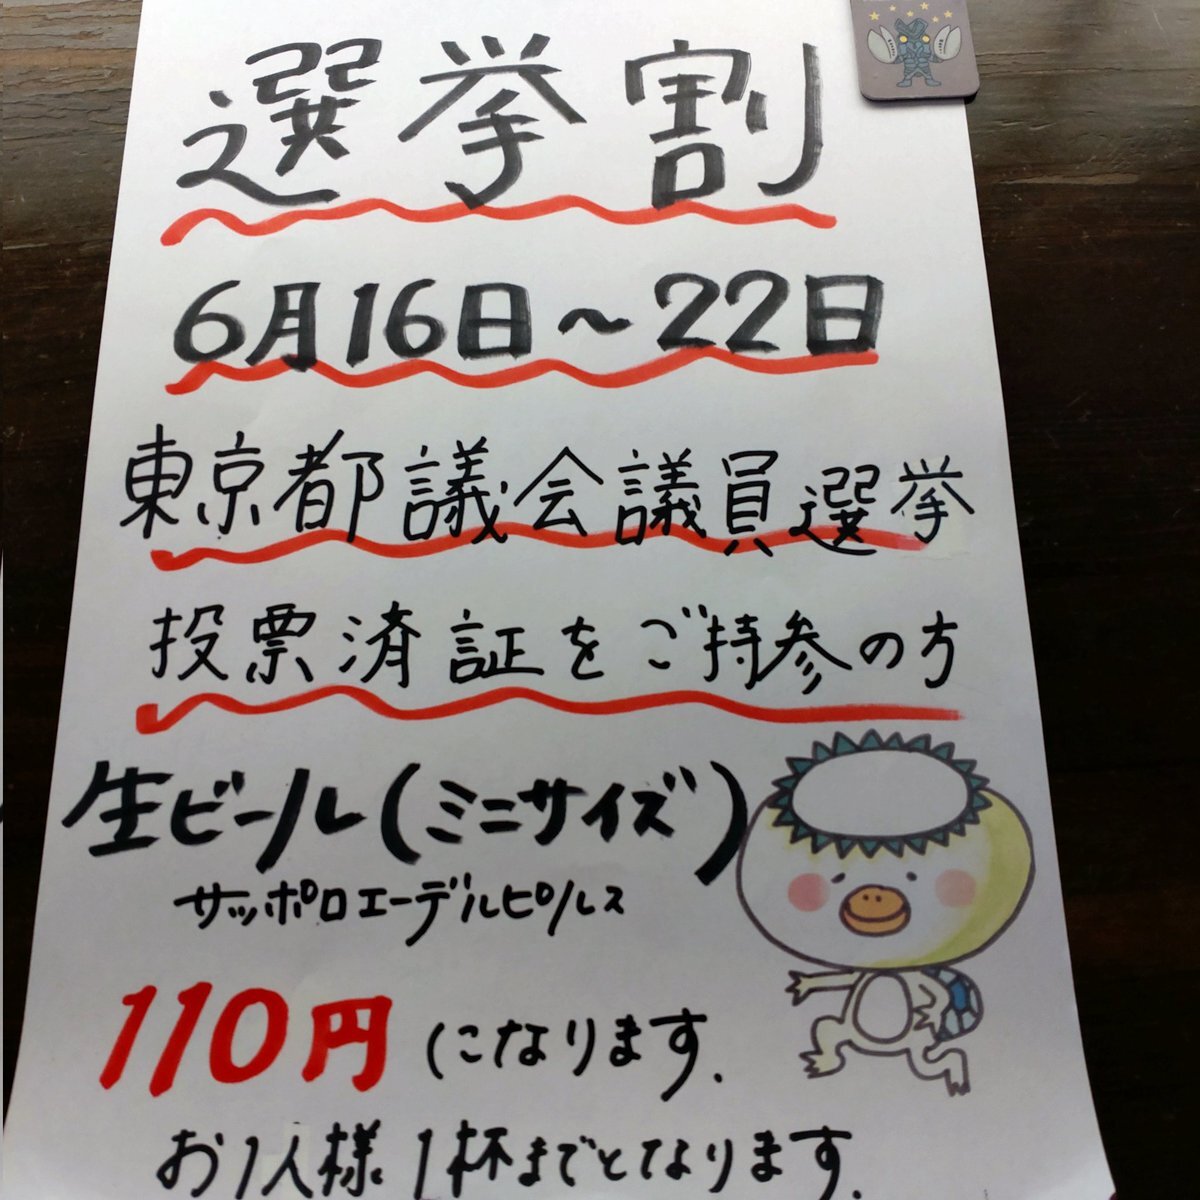 選挙割
6月16日～22日
東京都議会議員選挙
投票済証をご持参の方
生ビール(ミニサイズ)
サッポロエーデルピルス
110円になります.
お1人様1杯までとなります.